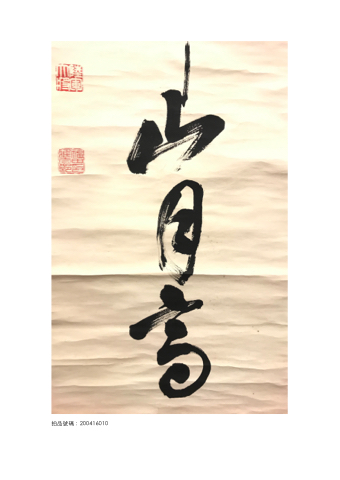 山月高
拍品號碼：200416010